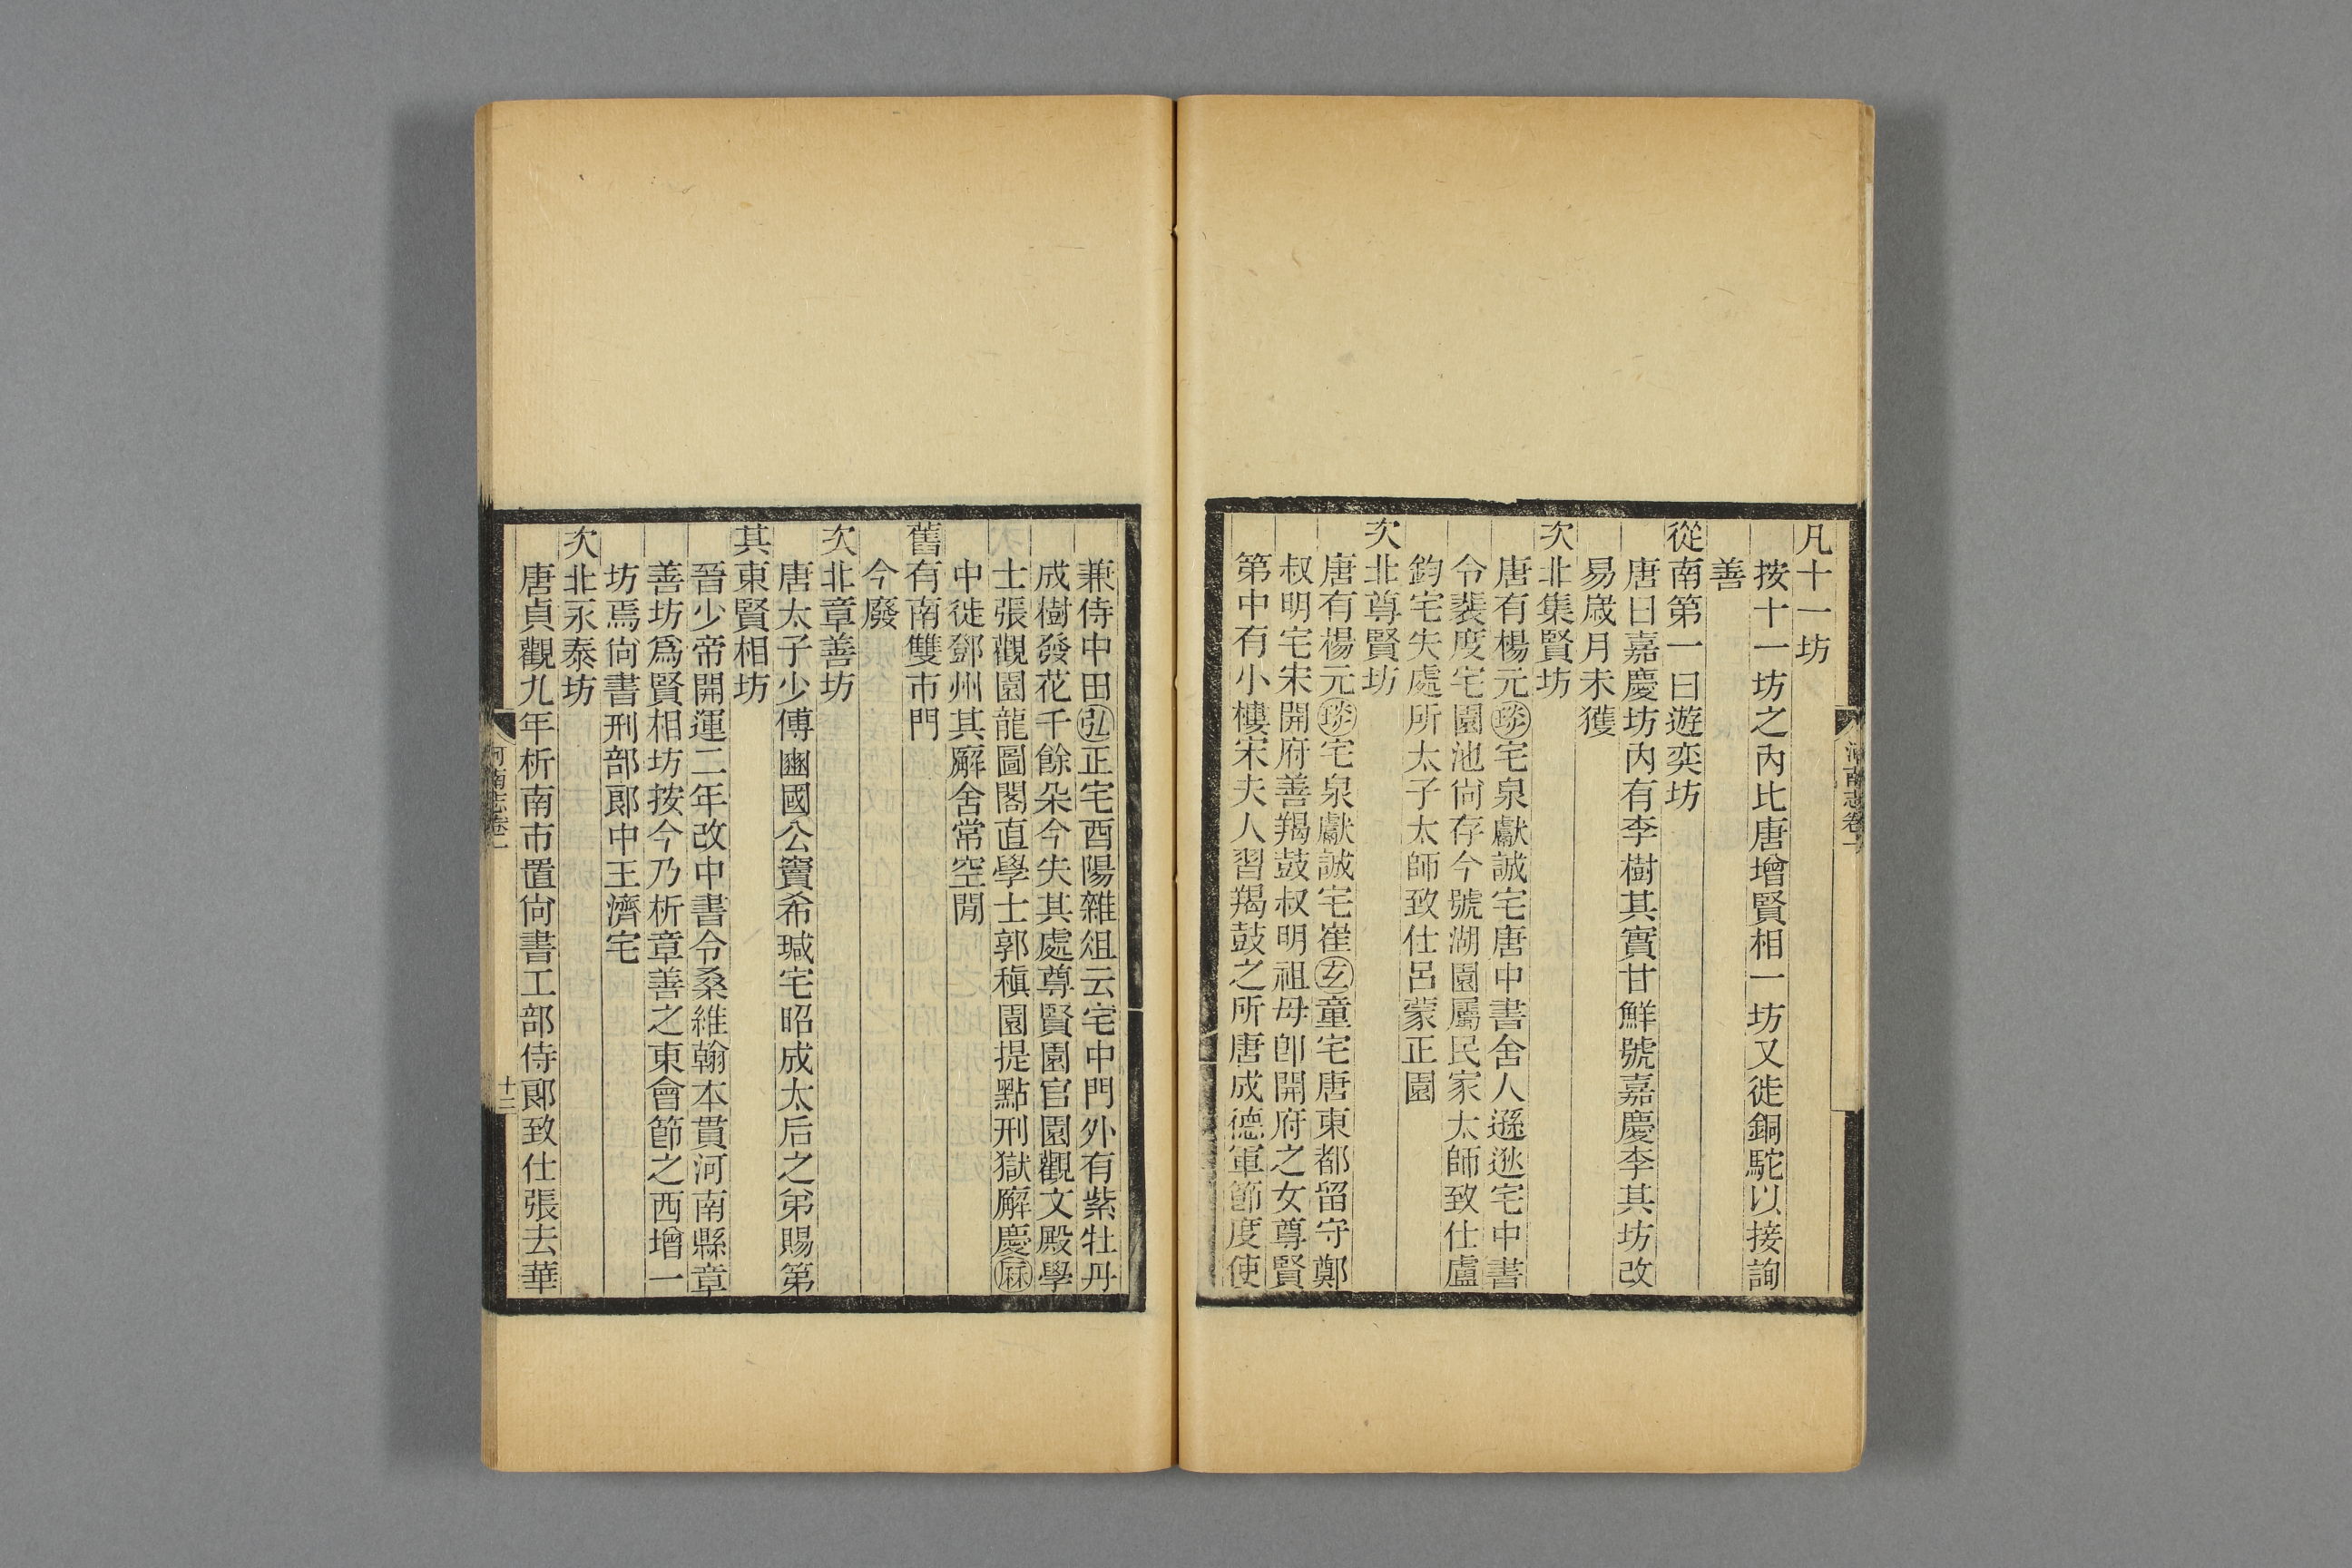 凡十一坊
按十一坊之內比唐增賢相一坊又徙銅駝以接詢
善
從南第一曰遊奕坊
唐曰嘉慶坊內有李樹其實甘鮮號嘉慶李其坊改
易歲月未獲
次北集賢坊
唐有楊元琰宅泉獻誠宅唐中書舍人遜逖宅中書
令裴度宅園池尙存今號湖園屬民家太師致仕盧
鈞宅失處所太子太師致仕呂蒙正園
次北尊賢坊
唐有楊元琰宅泉獻誠宅崔玄童宅唐東都留守鄭
叔明宅宋開府善羯鼓叔明祖母卽開府之女尊賢
第中有小樓宋夫人習羯鼓之所唐成德軍節度使
河南志卷一
兼侍中田弘正宅酉陽雜俎云宅中門外有紫牡丹
成樹發花千餘朵今失其處尊賢園官園觀文殿學
士張觀園龍圖閣直學士郭稹園提點刑獄廨慶厤
中徙鄧州其廨舍常空閒
舊有南雙市門
今廢
次北章善坊
唐太子少傅豳國公竇希瑊宅昭成太后之弟賜第
其東賢相坊
晉少帝開運二年改中書令桑維翰本貫河南縣章
善坊爲賢相坊按今乃析章善之東會節之西增一
坊焉尙書刑部郞中王濟宅
次北永泰坊
唐貞觀九年析南市置尙書工部侍郞致仕張去華
河南志卷一
十三